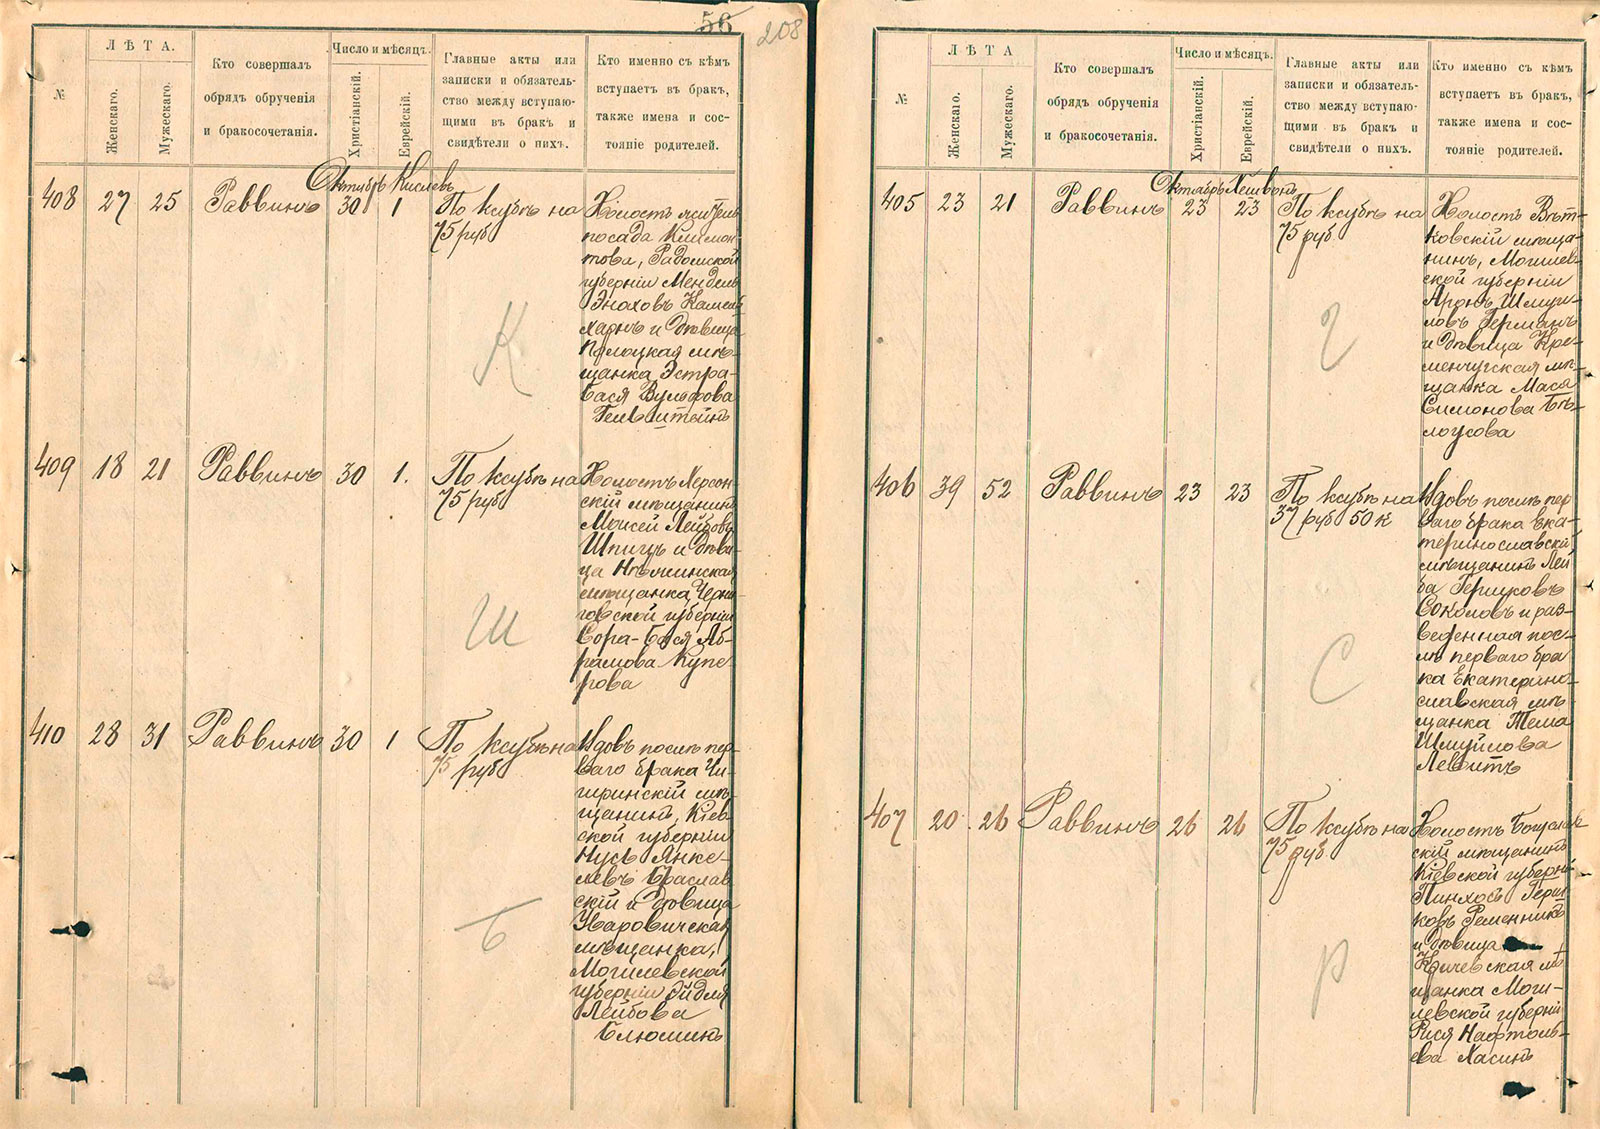 56
208
№
ЛѢТА.
Женскаго.
Мужескаго.
Кто совершалъ
обрядъ обрученія
и бракосочетанія.
Число и мѣсяцъ.
Христіанскій.
Еврейскій.
Главные акты или
записки и обязатель-
ство между вступаю-
щими въ бракъ и
свидѣтели о нихъ.
Кто именно съ кѣмъ
вступаетъ въ бракъ,
также имена и сос-
тояніе родителей.
Октябрь Кислевъ
408 27 25 Раввинъ 30 1 По ксубѣ на
75 руб
Холостъ житель
посада Климон-
това, Радомской
губерніи Мендель
Энахъ
харнъ и дѣвица
Полоцкая мѣ-
щанка Эстра-
Бася Вульфова
Гельштейнъ
К
409 18 21 Раввинъ 30 1. По ксубѣ на
75 руб
Холостъ Херсон-
скій мѣщанинъ
Моисей Лейбовъ
Шпицъ и дѣви-
ца Нѣжинская
мѣщанка, Черни-
говской губерніи
Сора-Бася Аб-
рамова Купе-
рова
Ш
410 28 31 Раввинъ 30 1 По ксубѣ на
75 руб
Вдовъ послѣ пер-
ваго брака Чи-
гиринскій мѣ-
щанинъ, Кіев-
ской губерніи
Нусь Янке-
левъ Браслав
скій и дѣвица
Уваровичская
мѣщанка,
Могилевской
губерніи Эйдля
Лейбова
Блюминъ
Б
№
ЛѢТА
Женскаго.
Мужескаго.
Кто совершалъ
обрядъ обрученія
и бракосочетанія.
Число и мѣсяцъ.
Христіанскій.
Еврейскій.
Главные акты или
записки и обязатель-
ство между вступаю-
щими въ бракъ и
свидѣтели о нихъ.
Кто именно съ кѣмъ
вступаетъ въ бракъ,
также имена и сос-
тояніе родителей.
Октябрь Хешвонъ
405 23 21 Раввинъ 23 23 По ксубѣ на
75 руб
Холостъ Вѣт-
ковскій мѣща-
нинъ, Могилев-
ской губерніи
Аронъ Шмуи-
ловъ Германъ
и дѣвица Кре-
менчугская мѣ-
щанка Мася
Симонова Бѣ-
лоусова
Г
406 39 52 Раввинъ 23 23 По ксубѣ на
37 руб 50 к
Вдовъ послѣ пер
ваго брака Ека-
теринославскій
мѣщанинъ Лей
ба Гершковъ
Соколовъ и раз-
веденная пос-
лѣ перваго бра
ка Екатерино-
славская мѣ-
щанка Тема
Шмуйлова
Левитъ
С
407 20 26 Раввинъ 26 26 По ксубѣ на
75 руб
Холостъ Богуслав
скій мѣщанинъ
Кіевской губерні
Пинхосъ Герш
ковъ Ременникъ
и дѣвица
Кричевская мѣ
щанка Моги-
левской губерніи
Рися Нафтоль-
ева Хасинъ
Р